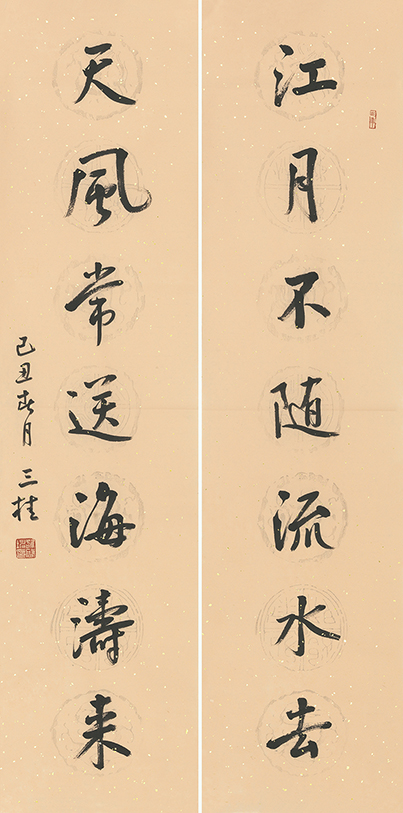 江月不随流水去
天風常送海濤来
己丑春月 三桂